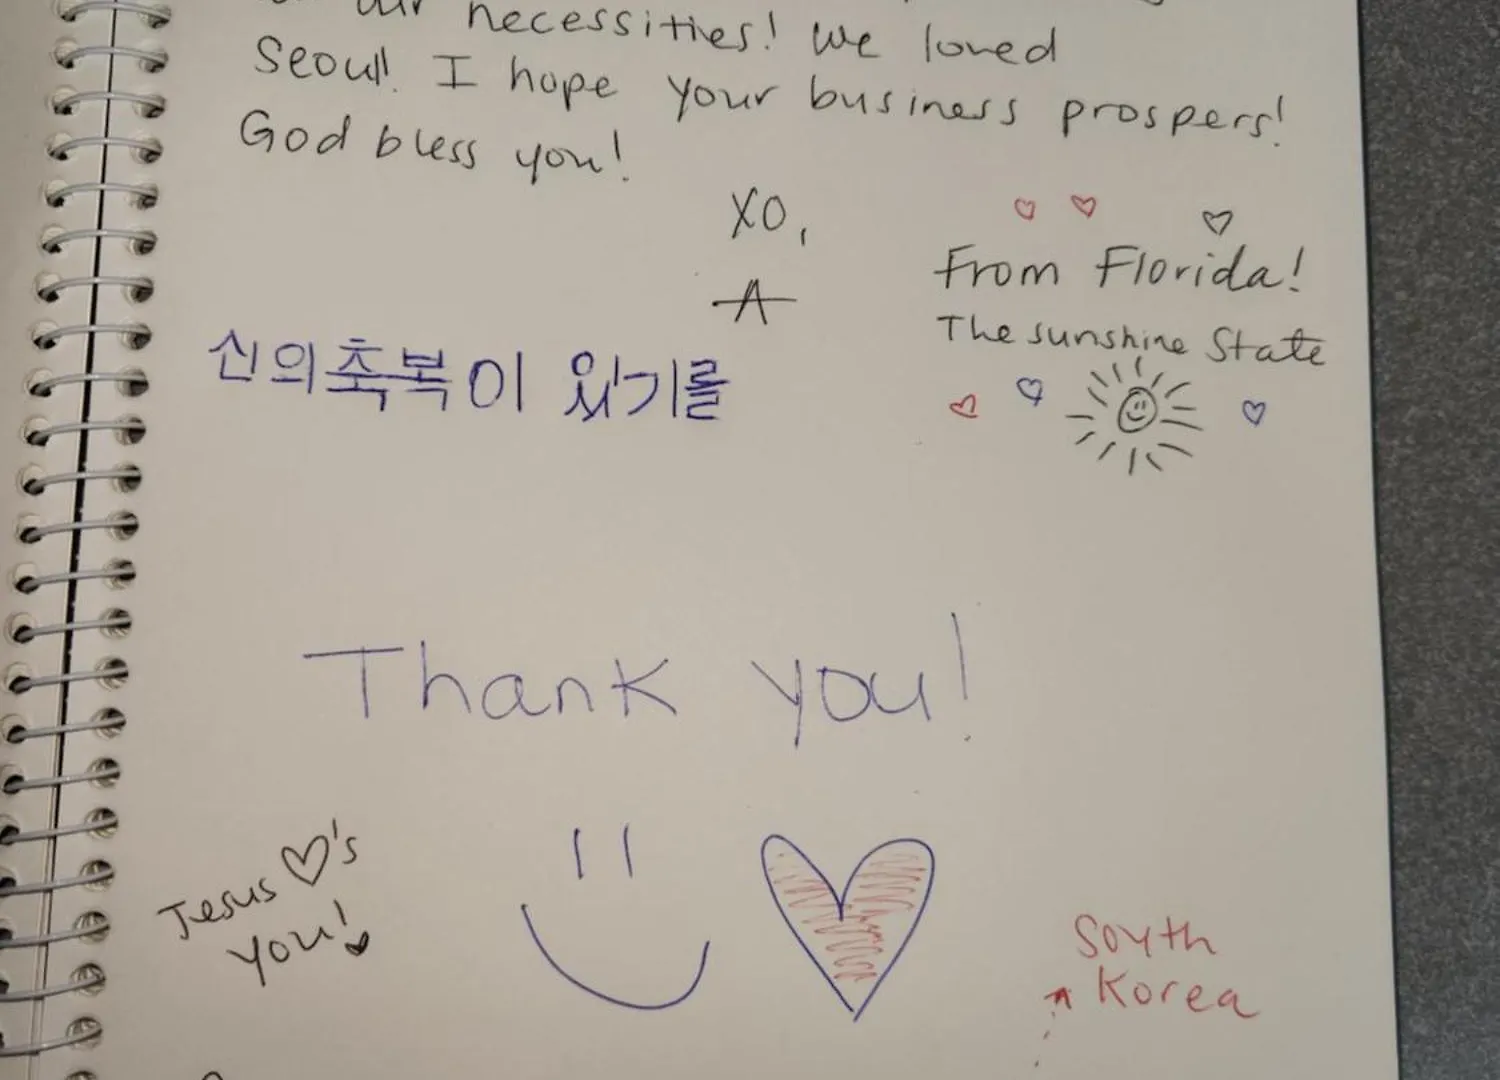 necessities! We loved
Seoul! I hope your business prospers!
God bless you!
XO,
A
From Florida!
The sunshine State
신의축복이 있기를
Thank you!
Jesus ♡'s
you!
South
Korea